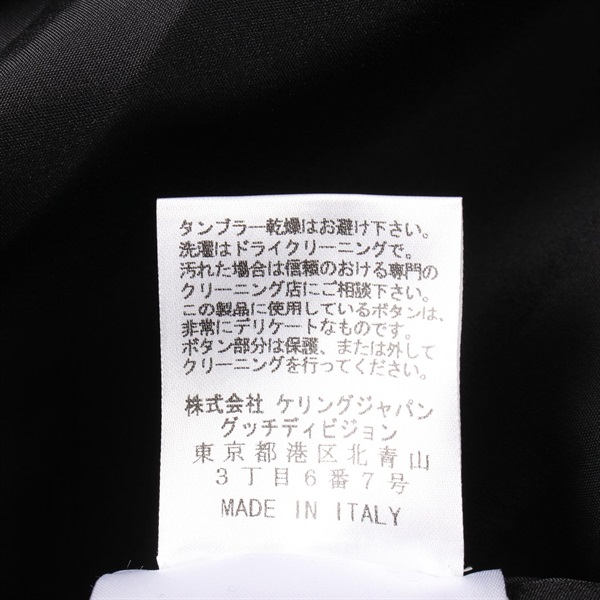 タンブラー乾燥はお避け下さい。
洗濯はドライクリーニングで。
汚れた場合は信頼のおける専門の
クリーニング店にご相談下さい。
この製品に使用しているボタンは、
非常にデリケートなものです。
ボタン部分は保護、または外して
クリーニングを行ってください。
株式会社 ケリングジャパン
グッチディビジョン
東京都港区北青山
3丁目6番7号
MADE IN ITALY